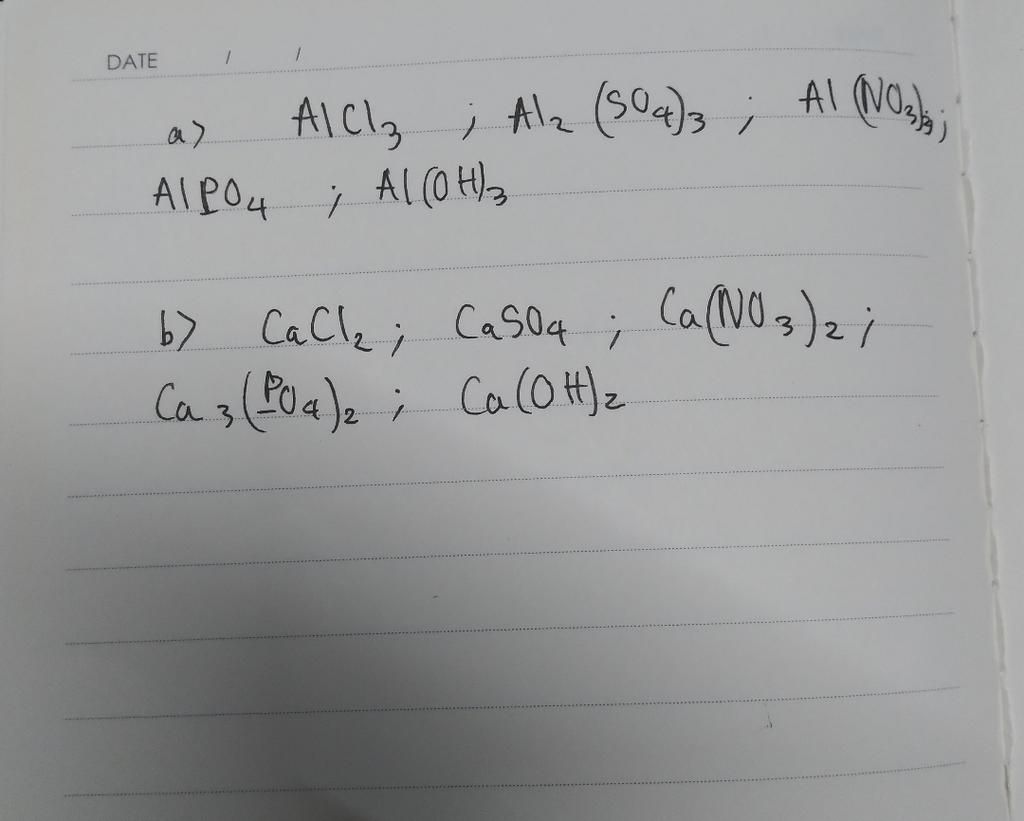 DATE / /
a> AlCl3 ; Al2 (SO4)3 ; Al (NO3)3;
AlPO4 ; Al(OH)3
b> CaCl2 ; CaSO4 ; Ca(NO3)2 ;
Ca3(PO4)2 ; Ca(OH)2